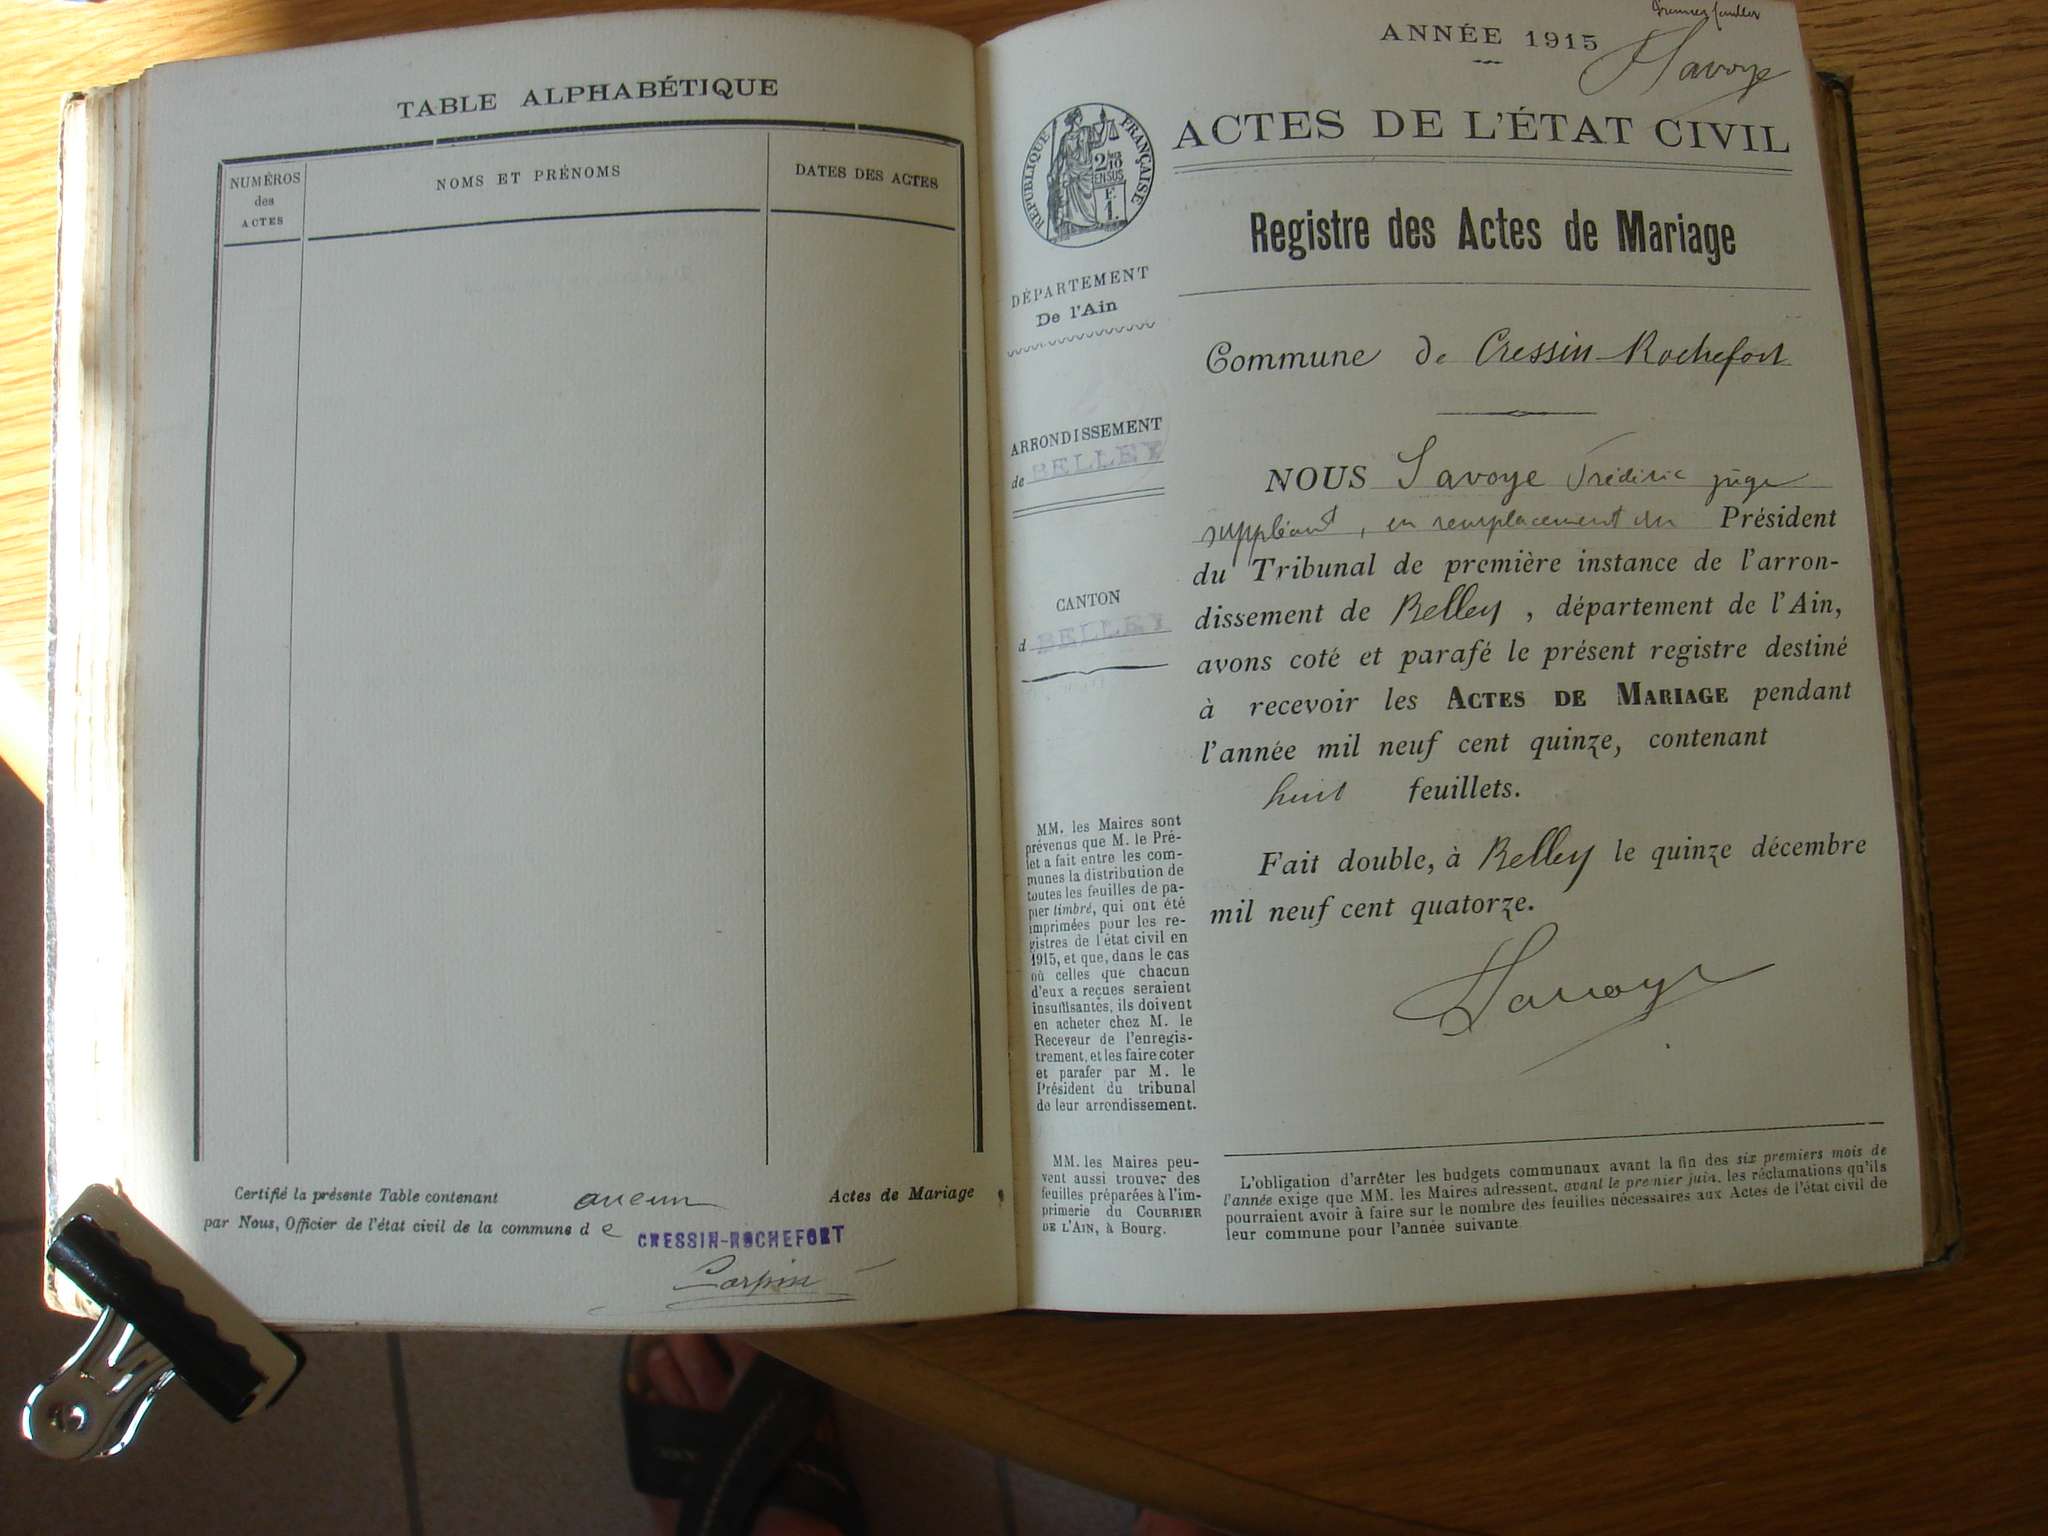 TABLE ALPHABÉTIQUE
NUMÉROS
des
ACTES
NOMS ET PRÉNOMS
DATES DES ACTES
Certifié la présente Table contenant aucun Actes de Mariage
par Nous, Officier de l'état civil de la commune de CRESSIN-ROCHEFORT
Premier feuillet
ANNÉE 1915
Savoye
ACTES DE L'ÉTAT CIVIL
RÉPUBLIQUE FRANÇAISE
2/10
EN SUS
F
1.
Registre des Actes de Mariage
DÉPARTEMENT
De l'Ain
ARRONDISSEMENT
de BELLEY
CANTON
d BELLEY
MM. les Maires sont
prévenus que M. le Pré-
fet a fait entre les com-
munes la distribution de
toutes les feuilles de pa-
pier timbré, qui ont été
imprimées pour les re-
gistres de l'état civil en
1915, et que, dans le cas
où celles que chacun
d'eux a reçues seraient
insuffisantes, ils doivent
en acheter chez M. le
Receveur de l'enregis-
trement, et les faire coter
et parafer par M. le
Président du tribunal
de leur arrondissement.
MM. les Maires peu-
vent aussi trouver des
feuilles préparées à l'im-
primerie du COURRIER
DE L'AIN, à Bourg.
Commune de Cressin-Rochefort
NOUS Savoye Frédéric juge
suppléant, en remplacement du Président
du Tribunal de première instance de l'arron-
dissement de Belley, département de l'Ain,
avons coté et parafé le présent registre destiné
à recevoir les ACTES DE MARIAGE pendant
l'année mil neuf cent quinze, contenant
huit feuillets.
Fait double, à Belley le quinze décembre
mil neuf cent quatorze.
Savoye
L'obligation d'arrêter les budgets communaux avant la fin des six premiers mois de
l'année exige que MM. les Maires adressent, avant le premier juin, les réclamations qu'ils
pourraient avoir à faire sur le nombre des feuilles nécessaires aux Actes de l'état civil de
leur commune pour l'année suivante.